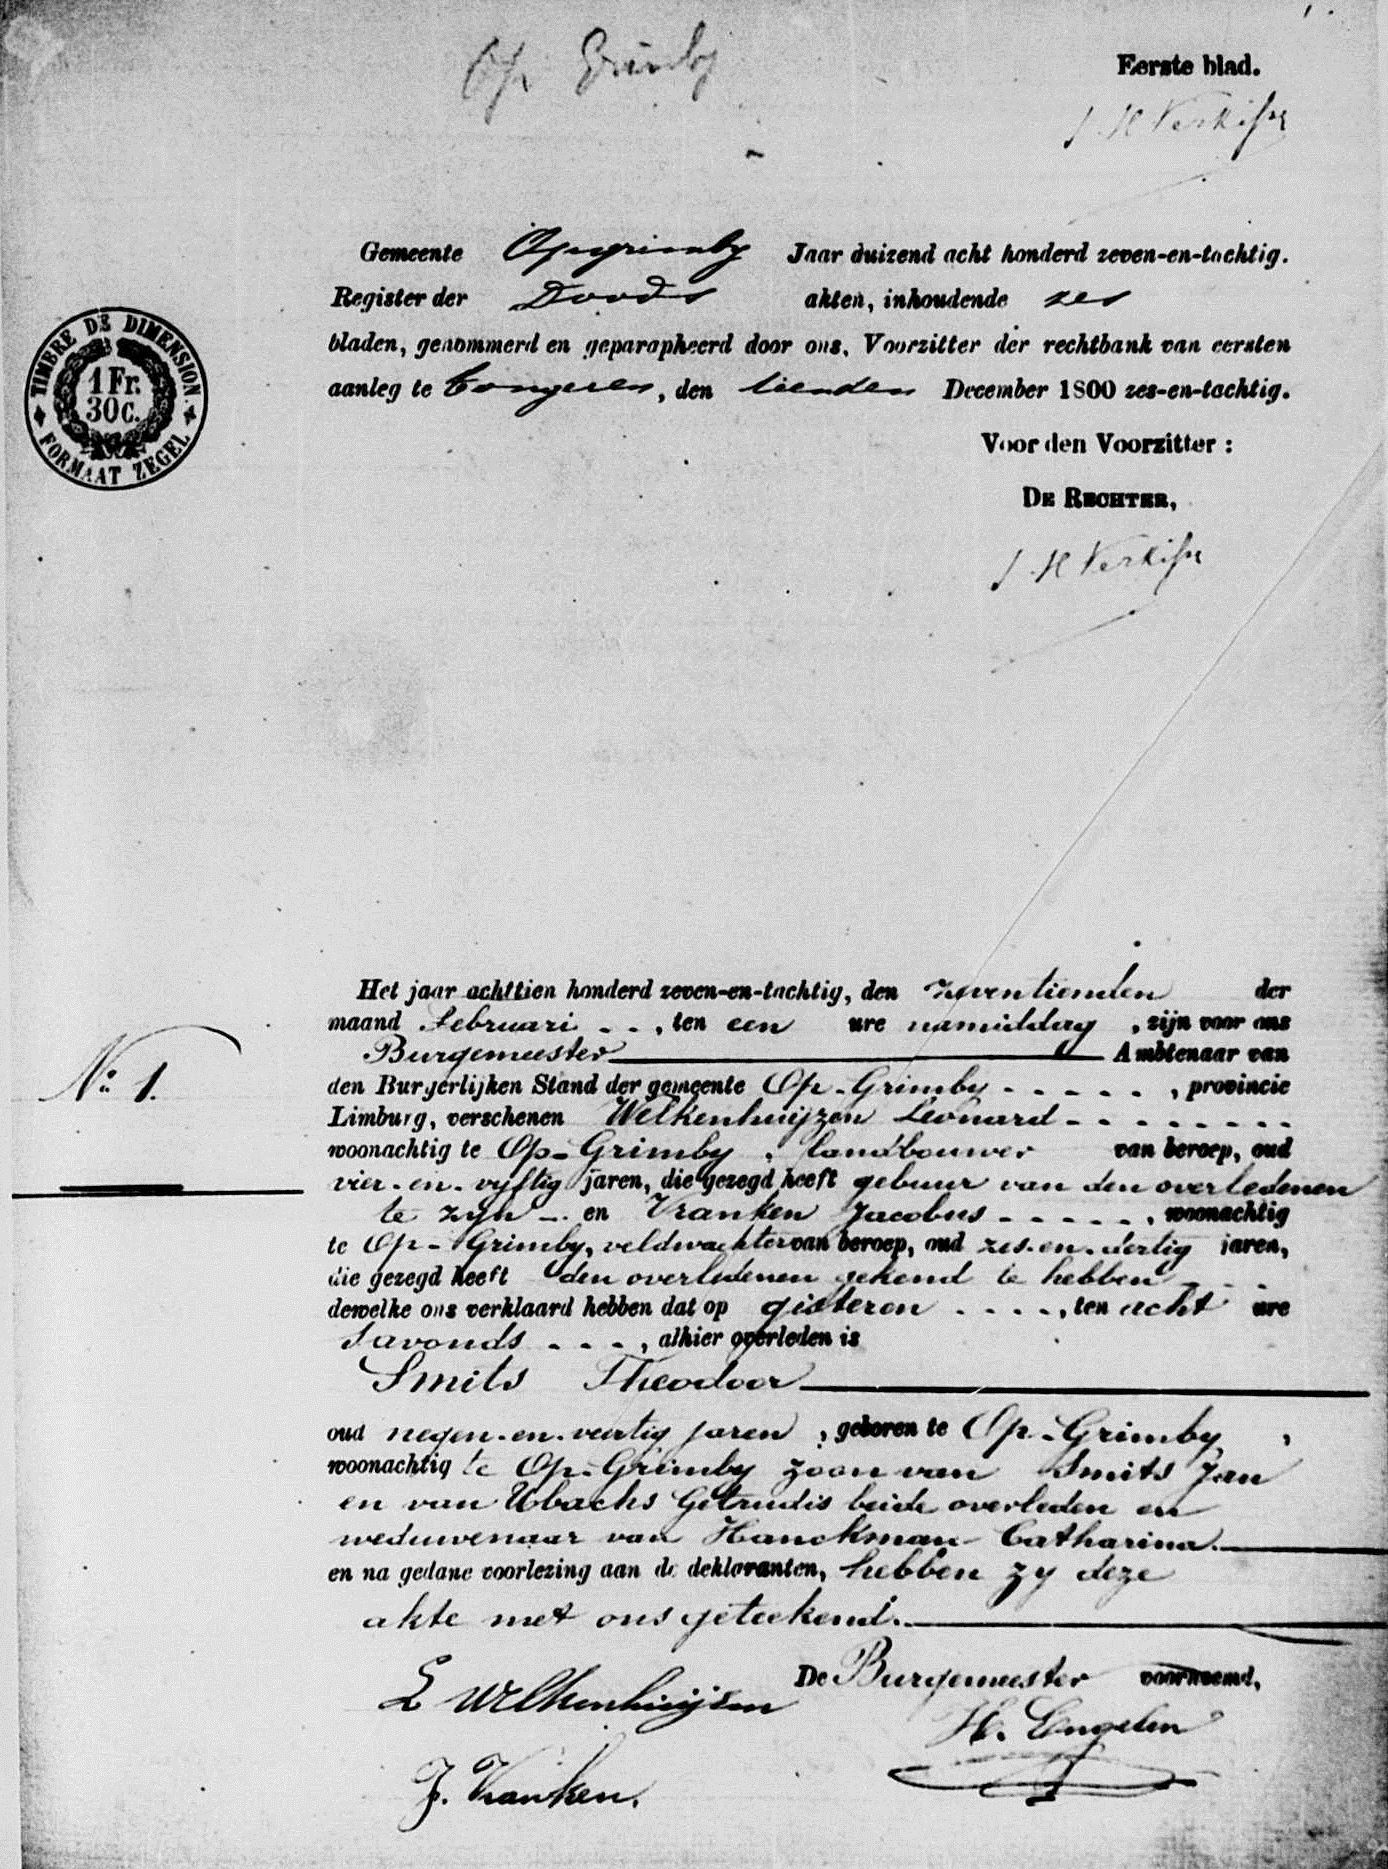 Op Grimby
Eerste blad.
Gemeente Opgrimby Jaar duizend acht honderd zeven-en-tachtig.
Register der Doods akten, inhoudende zes
bladen, genommerd en geparapheerd door ons, Voorzitter der rechtbank van eersten
aanleg te Tongeren, den tienden December 1800 zes-en-tachtig.
TIMBRE DE DIMENSION
1 Fr.
30 C.
FORMAAT ZEGEL
Voor den Voorzitter :
DE RECHTER,
Het jaar achttien honderd zeven-en-tachtig, den zeventienden der
maand Februari - - , ten een ure namiddag , zijn voor ons
Burgemeester Ambtenaar van
No 1.
den Burgerlijken Stand der gemeente Op-Grimby - - - - - , provincie
Limburg, verschenen Welkenhuijzen Leonard - - - - - - - -
woonachtig te Op-Grimby , landbouwer van beroep, oud
vier-en-vyftig jaren, die gezegd heeft gebuur van den overledenen
te zyn - en Vranken Jacobus - - - - - , woonachtig
te Op-Grimby, veldwachter van beroep, oud zes-en-dertig jaren,
die gezegd heeft den overledenen gekend te hebben - - -
dewelke ons verklaard hebben dat op gisteren - - - - , ten acht ure
s'avonds - - - , alhier overleden is
Smits Theodoor
oud negen-en-veertig jaren , geboren te Op-Grimby ,
woonachtig te Op-Grimby zoon van Smits Jan
en van Ubachs Getrudis beide overleden en
weduwenaar van Hanckman Catharina.
en na gedane voorlezing aan de deklaranten, hebben zy deze
akte met ons geteekend.
De Burgemeester voornoemd,
L Welkenhuijsen
H. Engelen
J. Vranken.